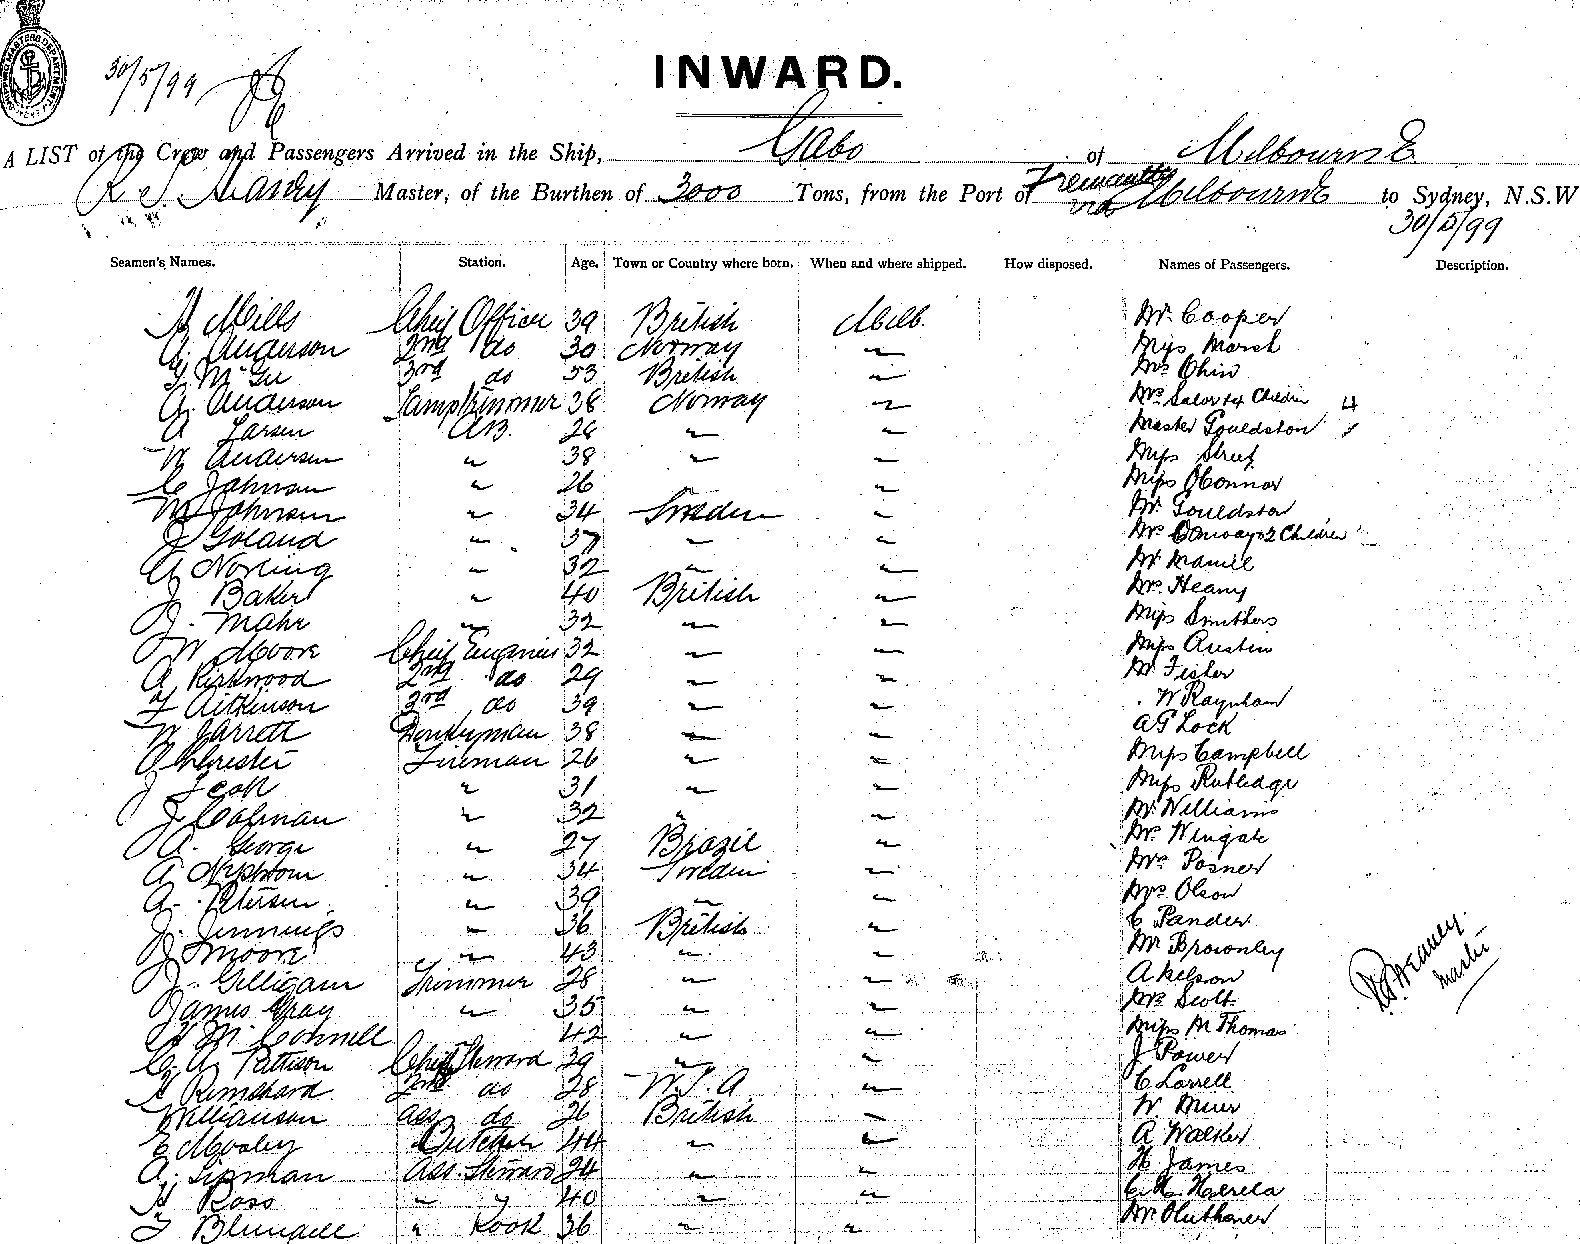 30/5/99
INWARD.
A LIST of the Crew and Passengers Arrived in the Ship, Gabo of Melbourne
Master, of the Burthen of 3000 Tons, from the Port of Fremantle via Melbourne to Sydney, N.S.W
30/5/99
Seamen's Names. Station. Age. Town or Country where born. When and where shipped. How disposed. Names of Passengers. Description.
Mills Chief Officer 39 British Melb. Mr. Cooper
A. Anderson 2nd do 30 Norway " Miss Marsh
McGee 3rd do 53 British "
A. Anderson Lamptrimmer 38 Norway " Mrs 4 Children 4
A Larsen A.B. 28 " " Master Gouldston
Andersen " 38 " " Miss Street
C Johnson " 26 " Miss O'Connor
Johnsen " 34 Sweden " Mr. Gouldston
J " 37 " " Mrs Conway & 2 Children
A Norling " 32 " " Mr
J Baker " 40 British " Mrs Heany
J. Mahr " 32 " " Miss Smithers
W Moore Chief Engineer 32 " " Miss Austin
A Kirkwood 2nd do 29 " " Mr Fisher
F Aitkinson 3rd do 39 " " W Raynham
W Jarrett Donkeyman 38 " " A G Lock
Fireman 26 " " Miss Campbell
J " 31 " " Miss Rutledge
J Colman " 32 " " Mr Williams
A. George " 27 Brazil " Mr. Wingate
A Nystrom " 34 Sweden " Mrs Posner
A. Petersen " 39 " " Mrs Olson
J. Jennings " 36 British " C Pander
J Moore " 43 " " Mr Brownley
J. Gilligan Trimmer 28 " " A Nelson
James Gray " 35 " " Mrs Scott
McConnell 42 " " Miss M Thomas
C. A. Pattison Chief Steward 39 " " J Power
2nd do 28 " C Lorrell
Williamson Ass do 26 British " W Muir
E Mosley Butcher 44 " " A Walker
A. Lipman Ass. Steward 24 " " H James
H Ross " " 40 " "
F Blundell " Kook 36 " " Mr
Master